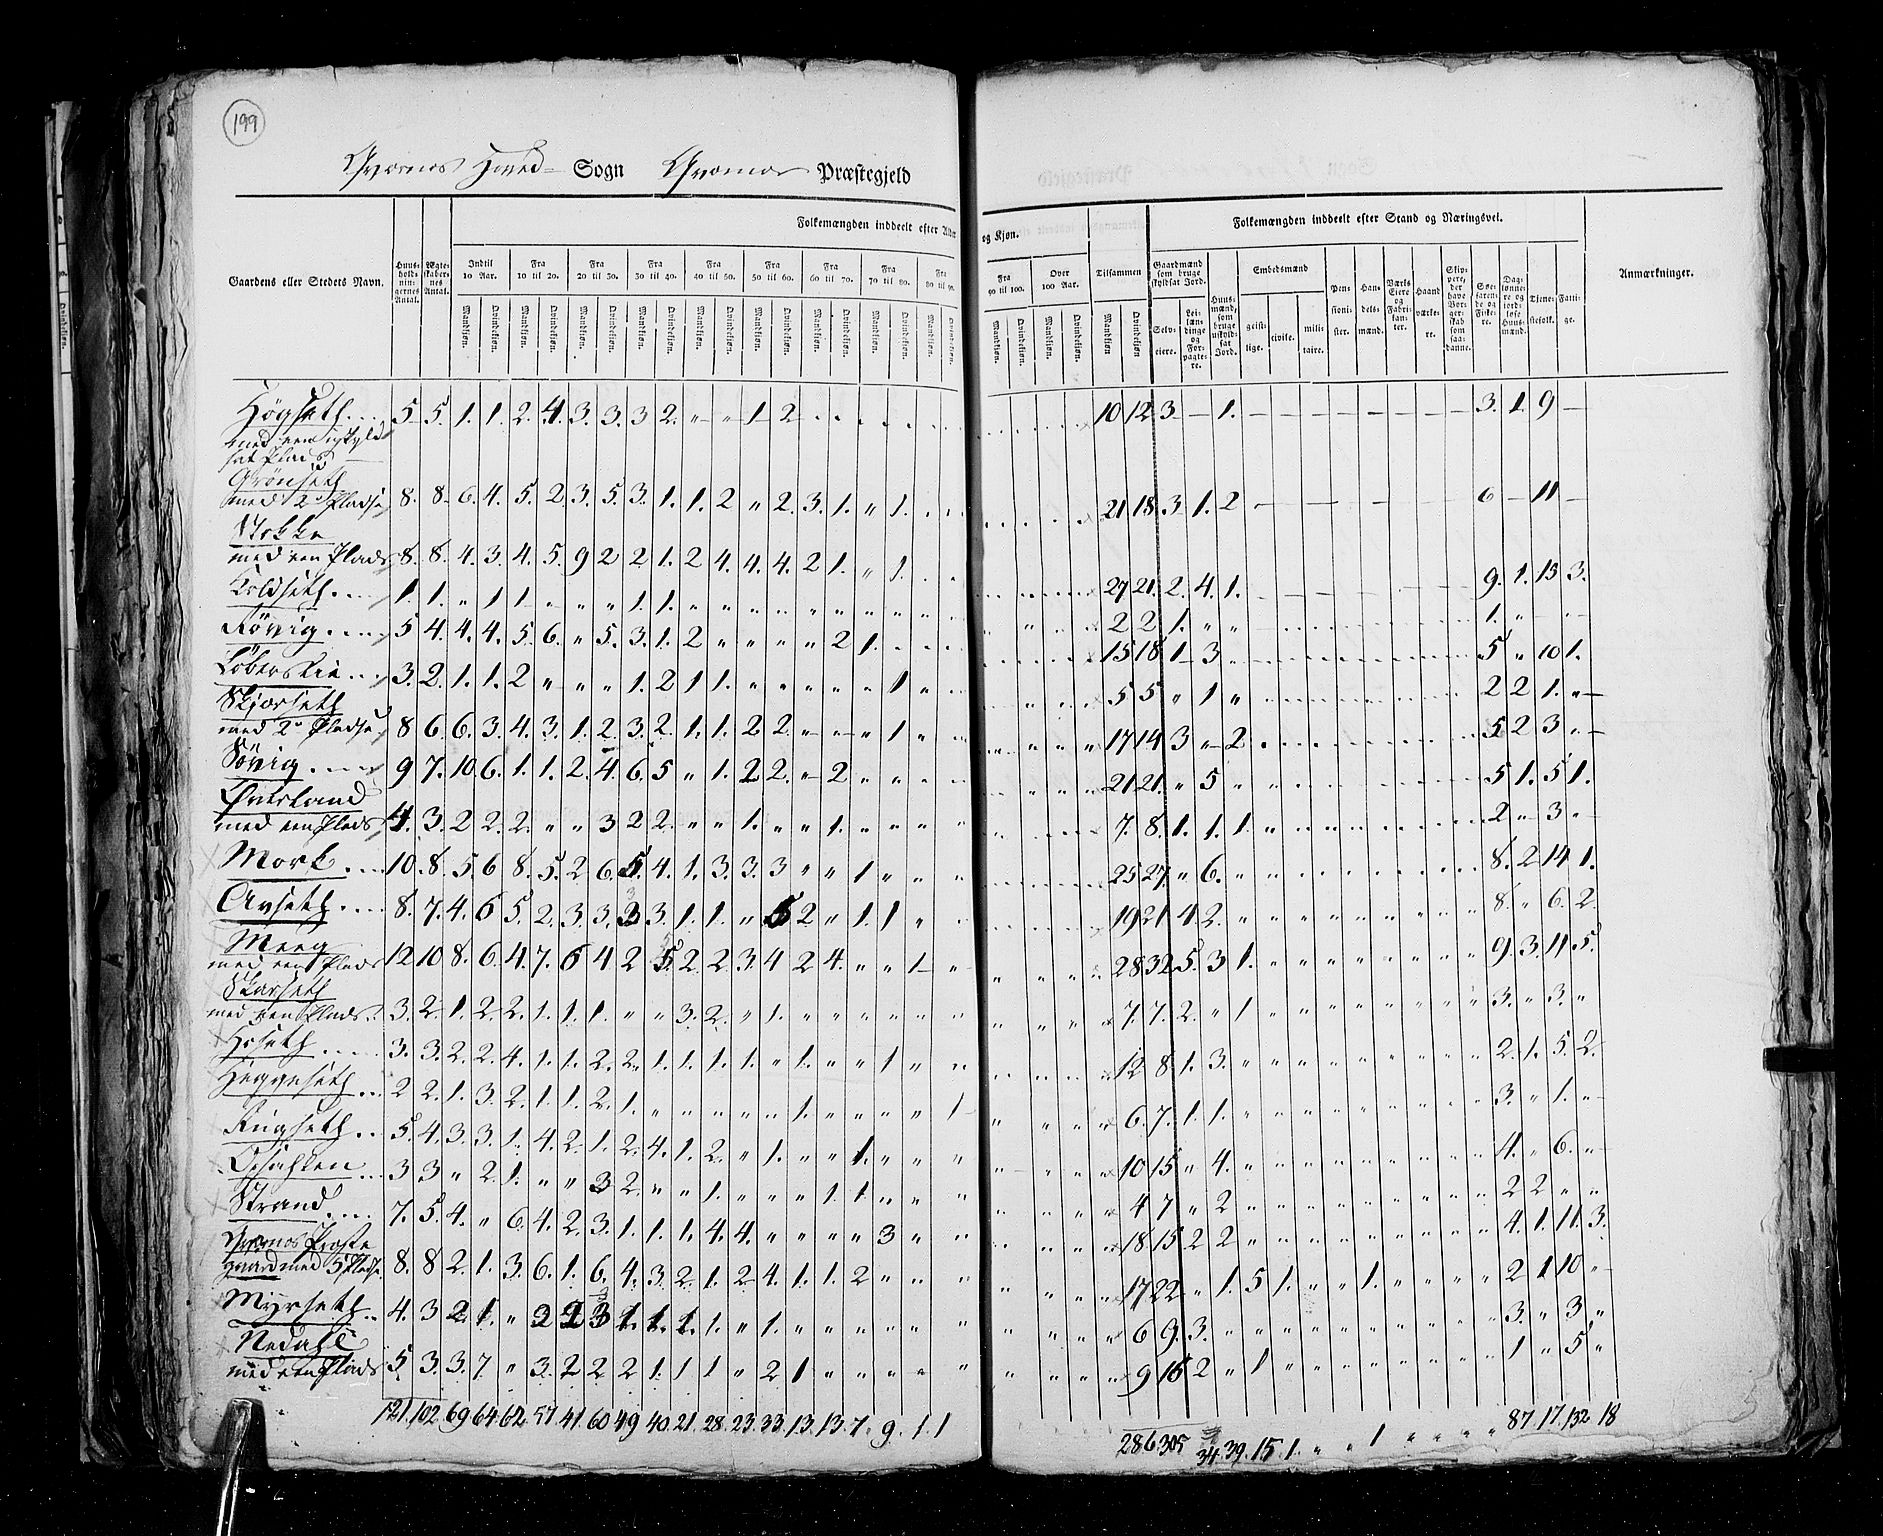 199
Sogn Præstegjeld
Folkemængden inddeelt efter Alder og Kjøn. Folkemængden inddeelt efter Stand og Næringsvei.
Gaardens eller Stedets Navn. Huusholdningernes Antal. Ægteskabernes Antal. Indtil 10 Aar. Fra 10 til 20. Fra 20 til 30. Fra 30 til 40. Fra 40 til 50. Fra 50 til 60. Fra 60 til 70. Fra 70 til 80. Fra 80 til 90. Fra 90 til 100. Over 100 Aar. Tilsammen Gaardmænd som bruge skyldsat Jord. Huusmænd, som bruge uskyldsat Jord. Embedsmænd Pensionister. Handelsmænd. Værks Eiere og Fabrikanter. Haandværkere. Skippere, der have Borgerskab som saadanne. Søefarende og Fiskere. Daglønnere og jordløse Huusmænd. Tjenestefolk. Fattige. Anmærkninger.
Mandkjøn. Qvindekjøn. Selveiere. Leilændinge og Forpagtere. geistlige. civile. militaire.
Høgseth 5 5. 1. 1. 2. 4. 3. 3. 3 2. „ „ 1 2 10 12 3 – 1. 3. 1. 9 –
med een uskyldsat Plads
Grønseth
med 2 Pladse 8. 8. 6. 4. 5. 2. 3. 5. 3. 1. 1. 2 „ 2. 3. 1. „ 1. 21 18. 3. 1. 2 6 – 11 –
Stokke
med een Plads 8. 8. 4. 3. 4. 5. 9 2 2 1. 2 4. 4. 4. 2 1. „ 1. 27 21. 2. 4. 1. 9. 1. 15 3.
Koldseth 1. 1. „ 1 1 „ „ „ 1. 1. 2 2 1. „ „ 1. „
Røvig 5 4. 4. 4. 5 6. „ 5. 3. 1. 2 „ „ „ „ 2 1. 15 18 1 3 5 „ 10 1.
3. 2. 1. 1. 2 „ „ „ 1. 2 1 1. „ „ „ „ „ 1 5 5 „ 1 „ 2 2 1. „
Skjorseth
med 2 Pladse 8 6. 6. 3. 4. 3. 1. 2. 3. 2. 1. 1. 2 2. „ „ „ 1 17 14 3 „ 2 5 2 3 „
Søvig 9 7. 10 6. 1. 1. 2. 4. 6. 5 „ 1. 2 2. „ 2 21 21. „ 5 5 1. 5 1.
Øverland
med een Plads 4. 3. 2 2. 2. „ „ 3 2 2. „ „ 1. „ „ 1. 7. 8. 1. 1. 1. 2 „ 3. „
Mork 10. 8. 5 6 8. 5. 2 6. 5. 4. 1. 3. 3. 3 „ „ 1 25 27. „ 6. 8. 2 14 1.
8. 7. 4. 6 5. 2. 3. 3. 3 3. 1. 1. „ 5 2. „ 1. 1. 19 21 4. 2. 8. „ 6. 2.
med een Plads 12 10 8. 6. 4. 7. 6 4 2 5. 2. 2. 3. 4 2 4. „ „ 1 28 32 5. 3 1. 9. 3. 11 5.
Skarseth
med een Plads 3. 2. 1. 2. 2. 1. 1. 1. „ „ 3. 2. „ 1. 7. 7. 2. „ 1 3. „ 3. „
Hoseth 3. 3. 2. 2. 4. 1. 1. 2. 2. 1. 1. 1. 1. „ 1. „ „ 1 12 8. 1. 3. 2. 1. 5. 2.
Heggeseth 2 2. 1. 3. 2. 1. 1. 2. 1. „ „ „ „ „ 1. „ „ „ „ 1 6. 7. 1. 1. 3. „ 1. „
Ringseth 5. 4. 3. 3. 1. 4. 2. 1. 2. 4. 1. 2. „ 1. „ „ 1. 10 15 „ 4. 4. „ 6. „
3 3 „ 2. 1. „ „ 3 2. „ „ 1. „ „ „ 1 1. 4 7 „ 2 2 2 „ „
Strand 7. 5. 4. „ 6. 4. 2. 3. 1. 1. 1. 4. 4. „ „ „ „ 3 18. 15 2 2 4. 1. 11. 3.
med 5 Pladse 8. 8 2. 1. 3. 6. 1. 6. 4. 3. 2. 1. 2 4. 1. 1. 2 17 22 „ 1. 5 1. „ „ 1. 2 1 10 „
Myrseth 4. 3 2. 1. „ 2 2 3 1. 1. 1. 1. „ 1. 6 9. 3. 3. „ 3 „
Nedahl
med een Plads 5 3. 3. 7 „ 3. 2 2. 2 1. 1 1 „ 2 1 9 16 2 „ 1 1 „ 5 „
121. 102. 69. 64. 62. 57 41. 60 49 40. 21. 28. 23. 33. 13. 13. 7. 9. 1. 1 286 305 34. 39. 15. 1. „ „ 1 87 17. 132 18